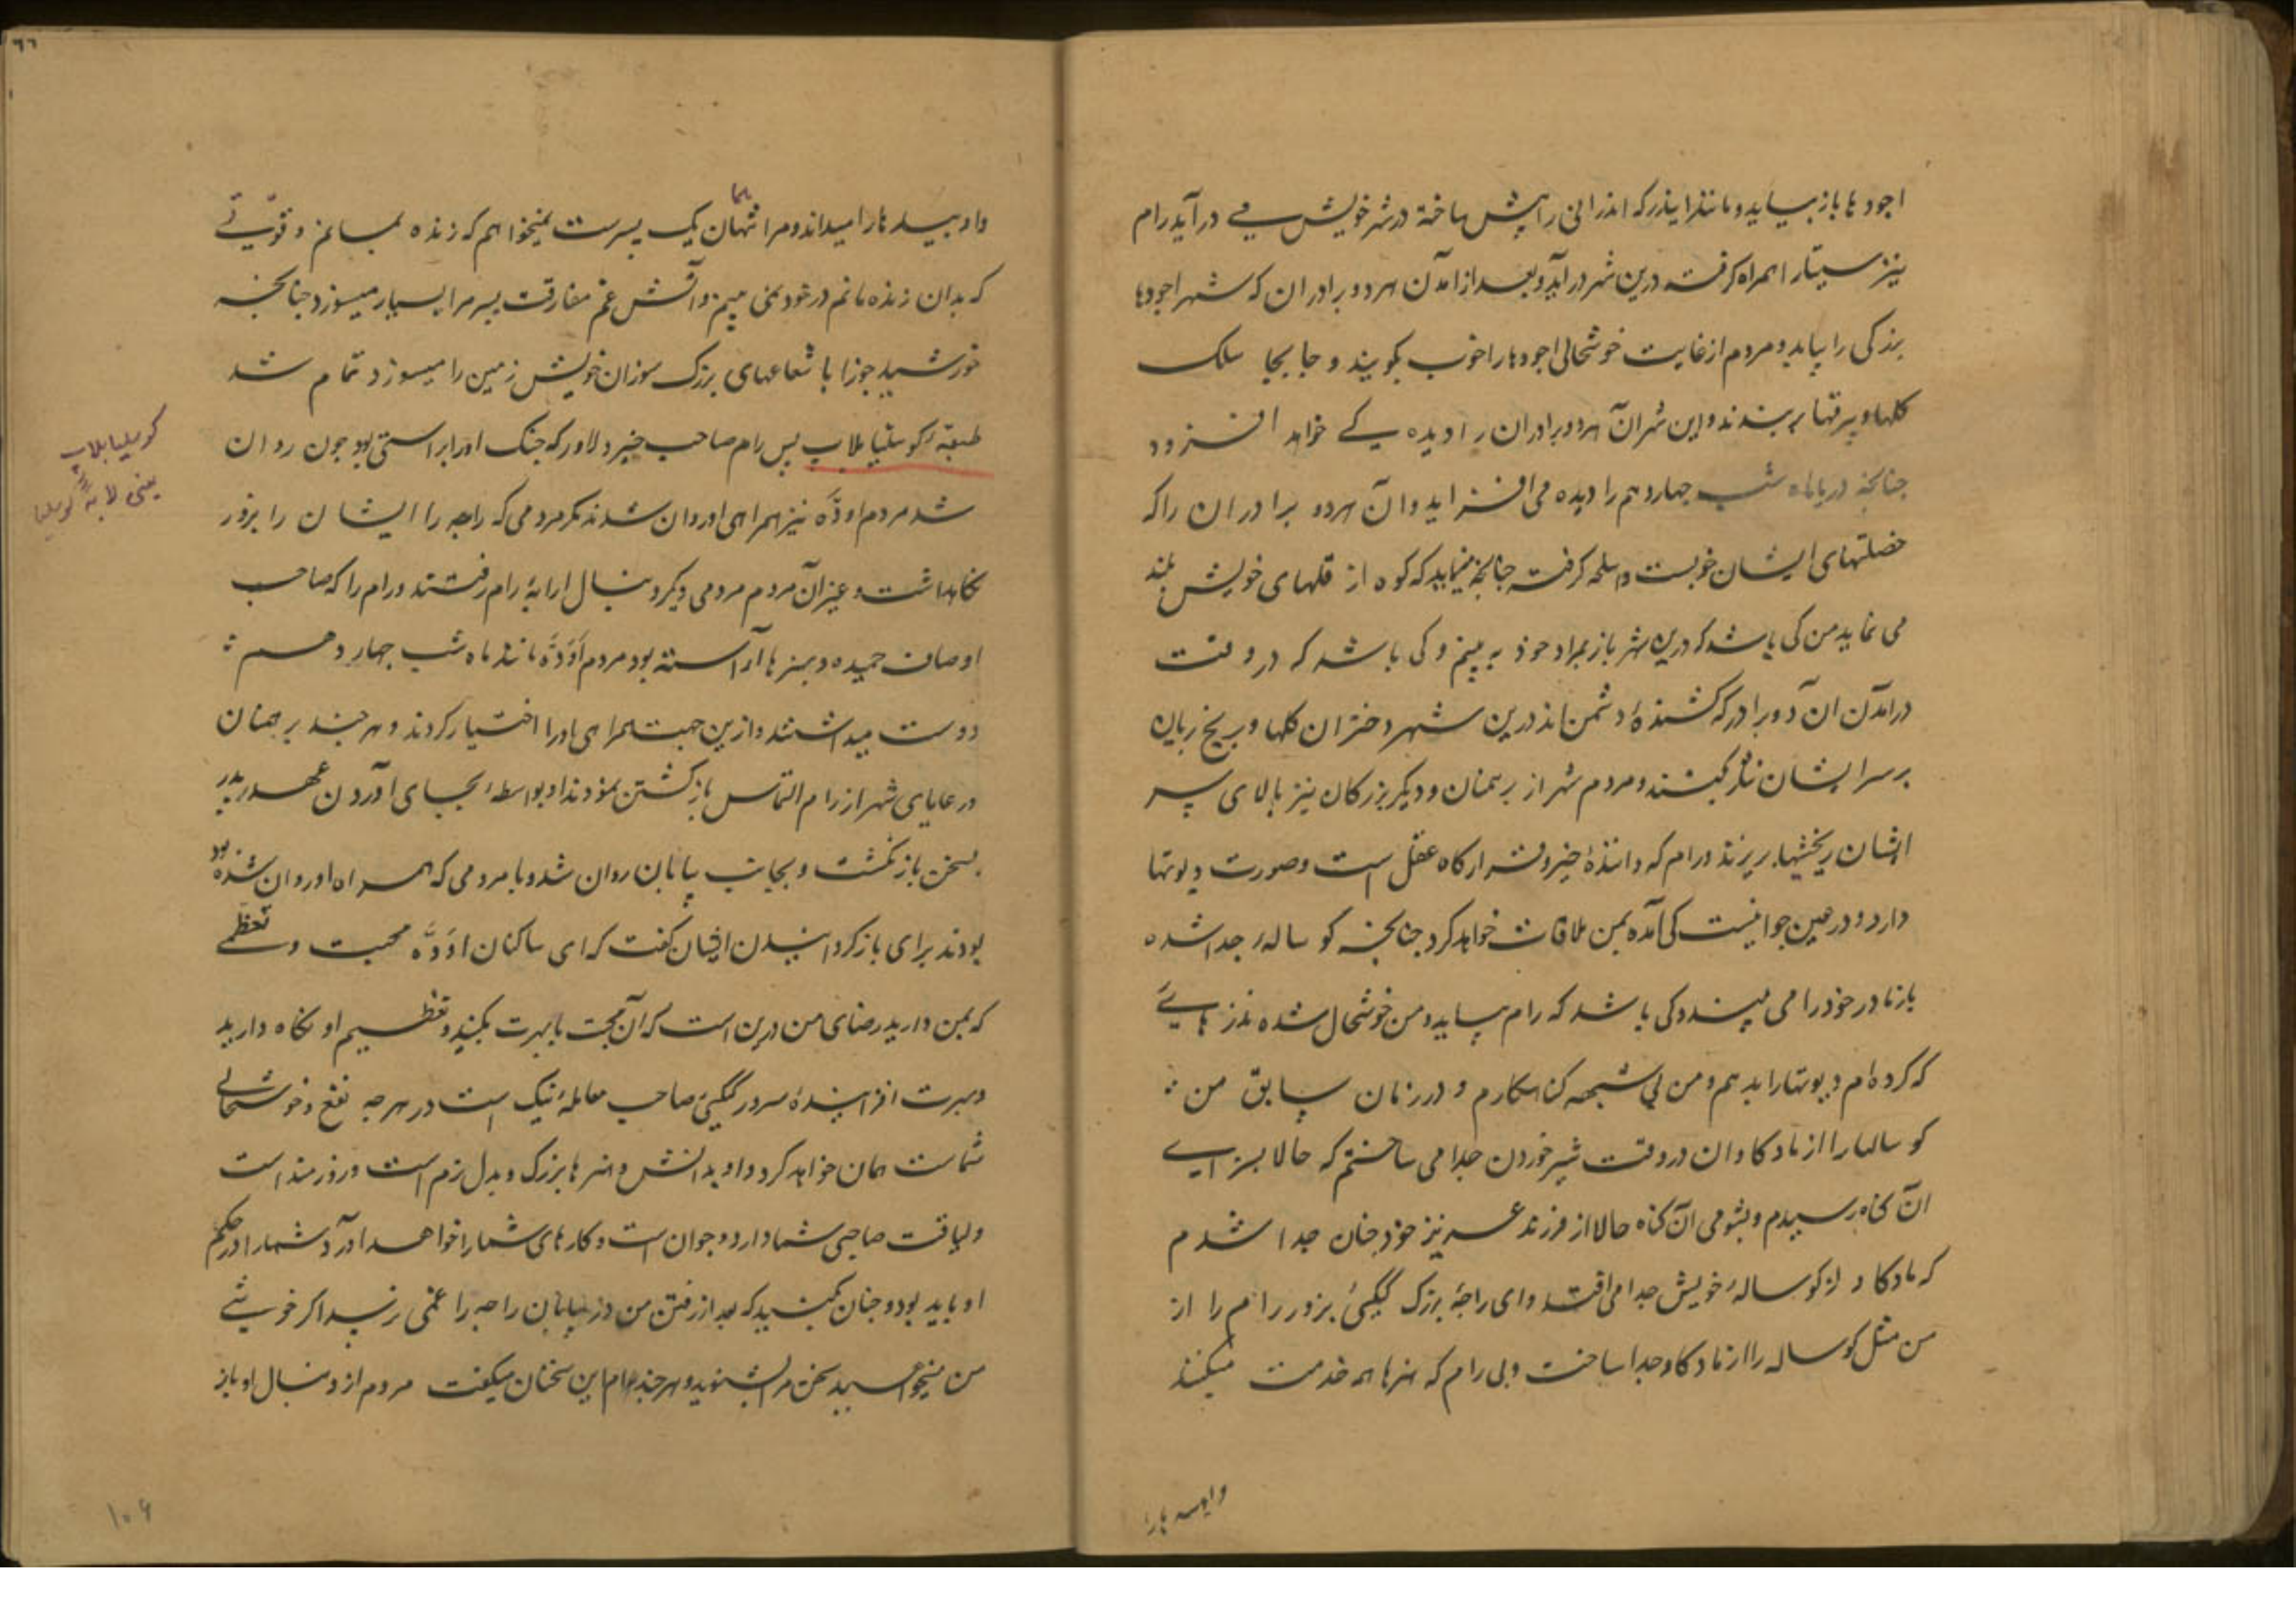 اجودها باز بیاید و مانند ایندر که اندرانی را پیش ساخته در شهر خویش می درآید رام
نیز سیتا را همراه گرفته درین شهر درآید و بعد از آمدن هر دو برادران که شهر اجودها
بزرگی را بیابد و مردم از غایت خوشحالی اجودها را خوب بکویند و جا بجا سلک
کلها و بیرقها بربندند و این شهر آن هر دو برادران را دیده کی خواهد افزود
چنانچه دریا ماه شب چهاردهم را دیده می افزاید و آن هر دو برادران را که
خصلتهای ایشان خوبست و اسلحه گرفته چنانچه مینماید که کوه از قلهای خویش بلند
می نماید من کی باشد که درین شهر باز بمراد خود به بینم و کی باشد که در وقت
درآمدن آن دو برادر که کشندهٔ دشمن اند درین شهر دختران کلها و برنج بریان
بر سر ایشان نثار کنند و مردم شهر از برهمنان و دیگر بزرگان نیز بالای سر
ایشان بریزند و رام که دانندهٔ خیر و شر است وصورت دیوتها
دارد و در عین جوانیست کی آمده بمن ملاقات خواهد کرد چنانچه کوساله جدا شده
باز مادر خود را می بیند و کی باشد که رام بیاید و من خوشحال شده نذرهایی
که کرده ام دیوتها را بدهم و من بی شبهه کناهکارم و در زمان سابق من :
کوسالها را از ماده کاوان در وقت شیر خوردن جدا می ساختم که حالا بسزای
آن کناه رسیدم و بشومی آن کناه حالا از فرزند عزیز خود چنان جدا شدم
که ماده کاو از کوسالهٔ خویش جدا می افتد و ای راجهٔ بزرک کیکیٔ بزور رام را از
من مثل کوساله را از ماده کاو جدا ساخت و بی رام که هنرها همه خدمت میکنند
و او همه
و او بید هارا میداند و مرا همان یک پسرست نمیخواهم که زنده بمانم و قوتی
که بدان زنده مانم در خود نمی بینم و آتش غم مفارقت پسر مرا بسیار میسوزد چنانچه
خورشید جوزا با شعاعهای بزرک سوزان خویش زمین را میسوزد تمام شد
طبقهٔ کوسلیا بلاپ پس رام صاحب خیر دلاور که جنک او براستی بود چون روان
شد مردم اودّه نیز همراهی او روان شدند مکر مردمی که راجه را ایشان را بزور
نکاهداشت و غیر آن مردم مردمی دیکر دنبال ارابهٔ رام رفتند و رام را که صاحب
اوصاف حمیده و بهنرها آراسته بود مردم اودّه مانند ماه شب چهاردهم :
دوست میداشتند و ازین جهت همراهی او را اختیار کردند و هر چند برهمنان
و رعایای شهر از رام التماس بازکشتن نمودند او بواسطهٔ بجای آوردن عهد پدر
بسخن باز نکشت و بجانب بیابان روان شد و با مردمی که همراه او روان شده بود
بودند برای باز کردانیدن ایشان کفت که ای ساکنان اودّه محبت و تعظیمی
که بمن دارید رضای من درین است که آن محبت با بهرت بکنید و تعظیم او نکاه دارید
و بهرت افزایندهٔ سرور کیکیٔ صاحب معاملهٔ نیک است در هر چه نفع و خوشحالی
شماست همان خواهد کرد و او بدانش و هنرها بزرک و بدل نرم است و زورمند است
و لیاقت صاحبی شما دارد و جوان است و کارهای شما را خواهد آورد و شما را در حکم
او باید بود و چنان کنید که بعد از رفتن من در بیابان راجه را غمی نرسد اکر خوشی
من میخواهید سخن مرا بشنوید و هر چند رام این سخنان میکفت مردم از دنبال او باز
کوسلیا بلاپ
یعنی لابهٔ کوسلیا
٦٦
۱۰۶